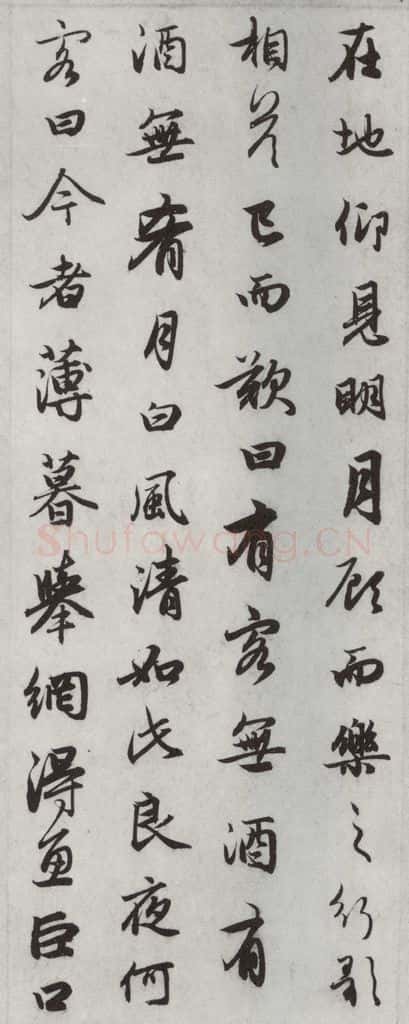 在地仰見明月顧而樂之行歌
相答已而歎曰有客無酒有
酒無肴月白風清如此良夜何
客曰今者薄暮舉網得魚巨口
Shufawang.CN